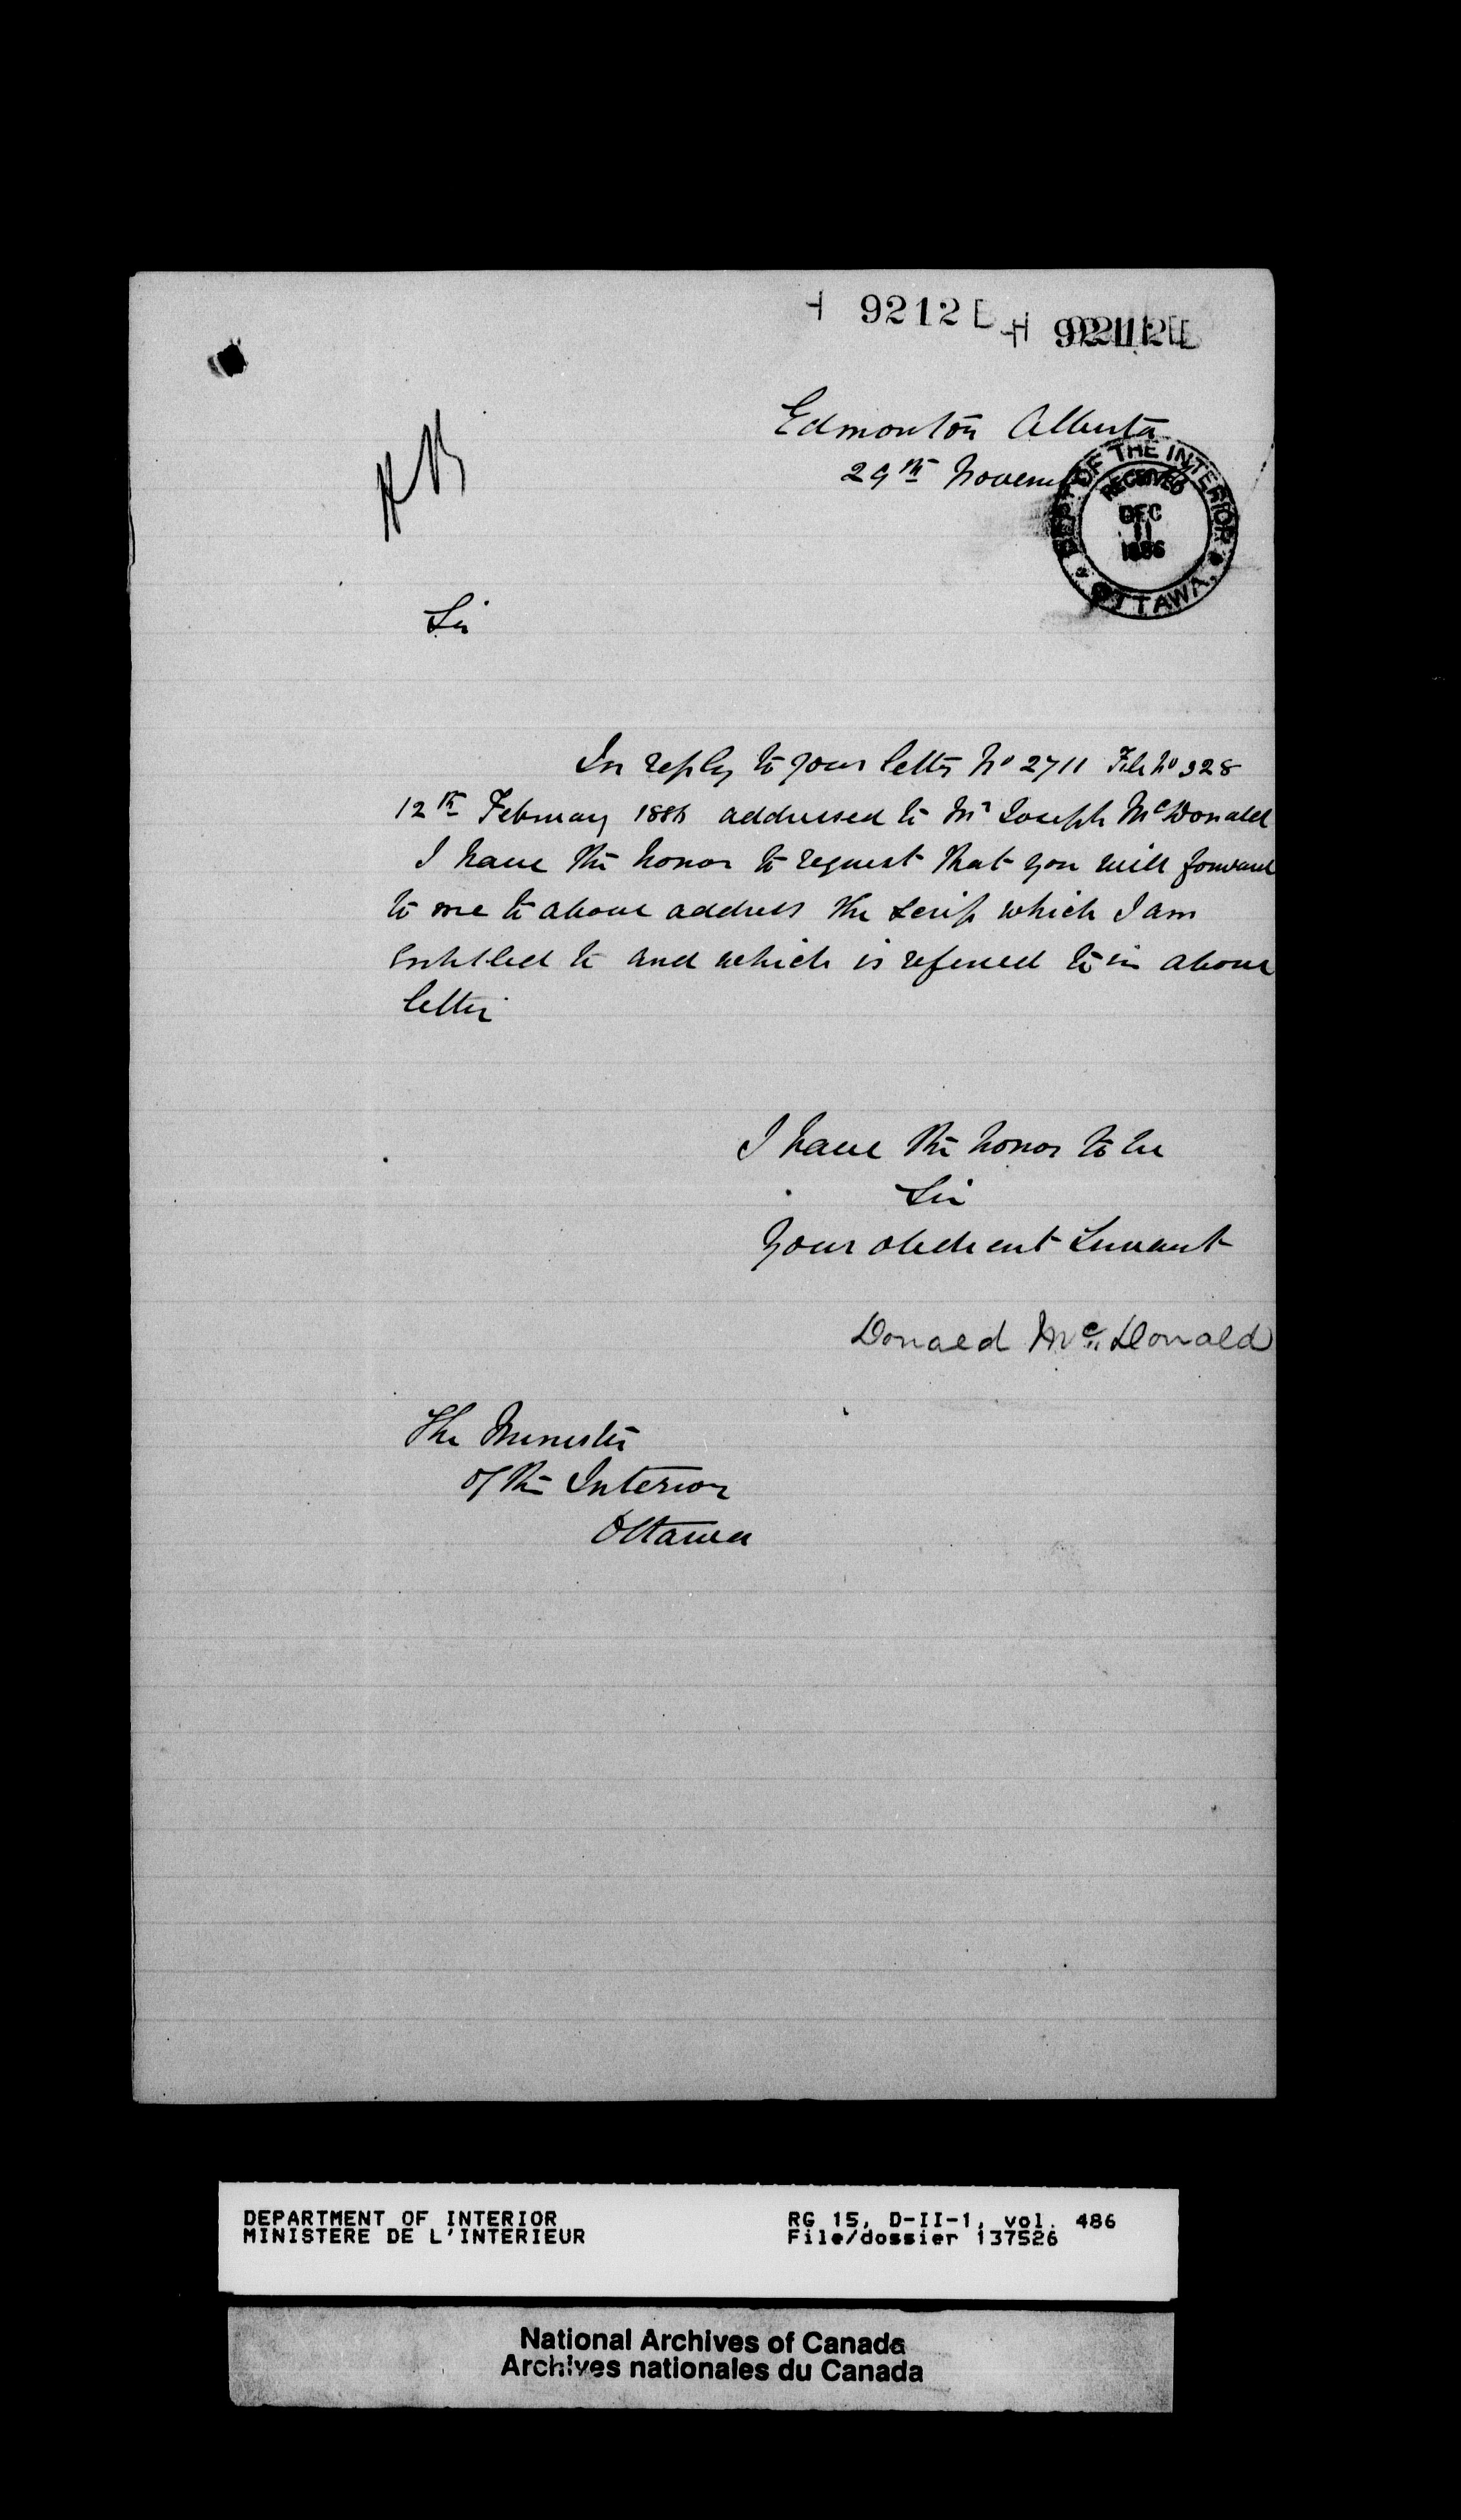 9212
Edmonton Alberta
29th Novem
DEPT OF THE INTERIOR
RECEIVED
DEC
11
1886
OTTAWA.
Sir
In reply to your letter No 2711 File No 328
12th February 1886 addressed to Mr Joseph McDonald
I have the honor to request that you will forward
to me to above address the scrip which I am
entitled to and which is referred to in above
letter
I have the honor to be
Sir
Your obedient Servant
Donald Mc Donald
The Minister
of the Interior
Ottawa
DEPARTMENT OF INTERIOR RG 15, D-II-1, vol. 486
MINISTERE DE L'INTERIEUR File/dossier 137526
National Archives of Canada
Archives nationales du Canada